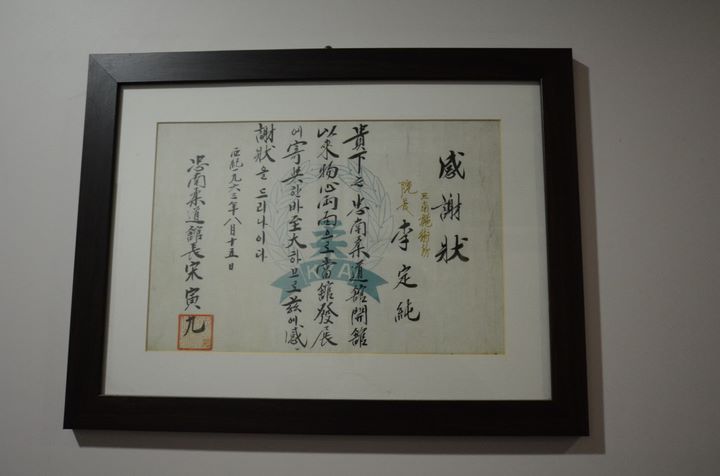 感謝狀
院長
李定純
貴下는 忠南柔道舘開舘
以來物心両面으로 當舘發展
에 寄與한바 至大하므로 玆에 感
謝狀을 드리나이다
西紀一九六三年八月十五日
忠南柔道舘長 宋寅九